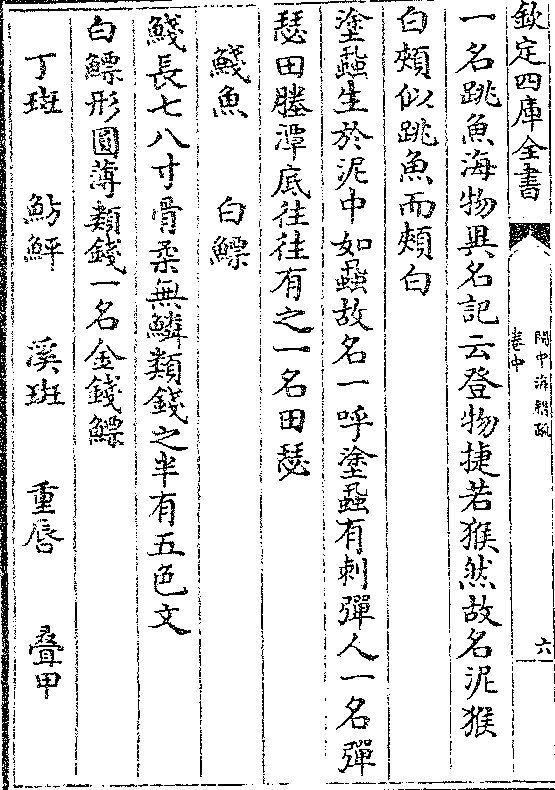 欽定四庫全書
閩中海錯疏
卷中
六
一名跳魚海物異名記云登物捷若猴然故名泥猴
白頰似跳魚而頰白
塗蝨生於泥中如蝨故名一呼塗蝨有刺彈人一名彈
瑟田塍潭底往往有之一名田瑟
䱠魚　白鰾
䱠長七八寸骨柔無鱗類錢之半有五色文
白鰾形圓薄類錢一名金錢鰾
丁斑　魴鮃　溪斑　重唇　疊甲